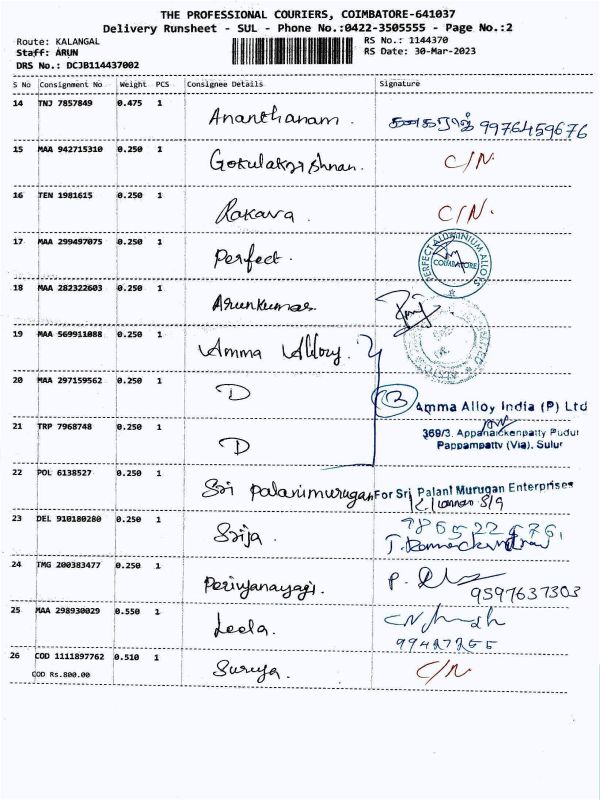 THE PROFESSIONAL COURIERS, COIMBATORE-641037
Delivery Runsheet - SUL - Phone No.:0422-3505555 - Page No.:2
Route: KALANGAL RS No.: 1144370
Staff: ARUN RS Date: 30-Mar-2023
DRS No.: DCJB114437002
S No Consignment No Weight PCS Consignee Details Signature
14 TNJ 7857849 0.475 1 Ananthanam. கனகராஜ் 9976459676
15 MAA 942715310 0.250 1 Gokulakrishnan. C/N.
16 TEN 1981615 0.250 1 Rakava. C/N.
17 MAA 299497075 0.250 1 Perfect. PERFECT ALUMINIUM ALLOYS COIMBATORE
18 MAA 282322603 0.250 1 Arunkumar.
19 MAA 569911088 0.250 1 Amma Alloy.
20 MAA 297159562 0.250 1 D 3 Amma Alloy India (P) Ltd
21 TRP 7968748 0.250 1 D 369/3, Appanaickenpatty Pudur
Pappampatty (Via), Sulur
22 POL 6138527 0.250 1 Sri Palanimurugan For Sri Palani Murugan Enterprises
23 DEL 910180280 0.250 1 Srija.
24 TMG 200383477 0.250 1 Periyanayagi. P. 9597637303
25 MAA 298930029 0.550 1 Leela.
26 COD 1111897762 0.510 1 Suruya. C/N
COD Rs.800.00